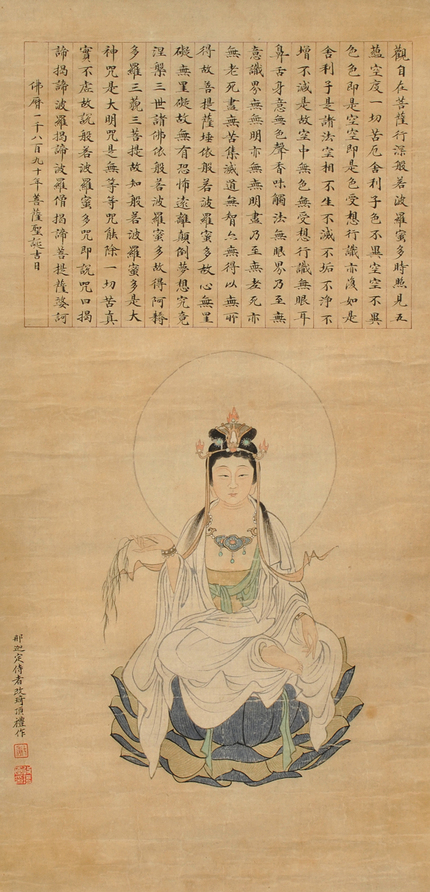 觀自在菩薩行深般若波羅蜜多時照見五
蘊空度一切苦厄舍利子色不異空空不異
色色即是空空即是色受想行識亦復如是
舍利子是諸法空相不生不滅不垢不淨不
增不減是故空中無色無受想行識無眼耳
鼻舌身意無色聲香味觸法無眼界乃至無
意識界無無明亦無無明盡乃至無老死亦
無老死盡無苦集滅道無智亦無得以無所
得故菩提薩埵依般若波羅蜜多故心無罣
礙無罣礙故無有恐怖遠離顛倒夢想究竟
涅槃三世諸佛依般若波羅蜜多故得阿耨
多羅三藐三菩提故知般若波羅蜜多是大
神咒是大明咒是無等等咒能除一切苦真
實不虛故說般若波羅蜜多咒即說咒曰揭
諦揭諦波羅揭諦波羅僧揭諦菩提薩婆訶
佛曆二千八百九十年菩薩聖誕吉日
那迦定侍者改琦頂禮作